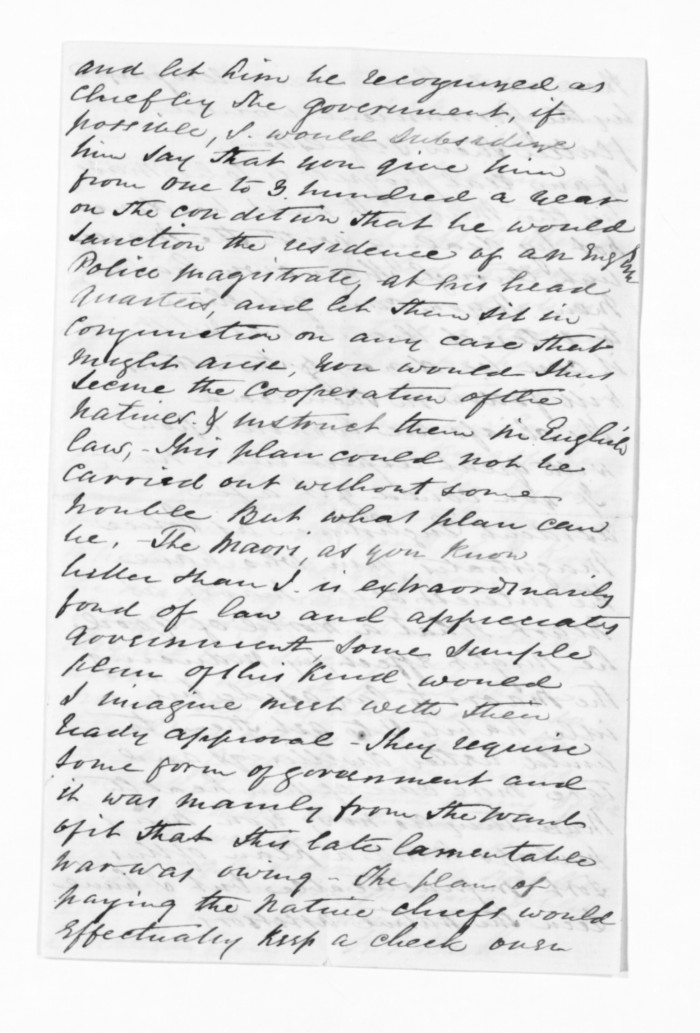 and let him be recognized as
chief by the government, if
possible, I. would subsidize
him say that you give him
from one to 3 hundred a year
on the condition that he would
sanction the residence of an English
Police magistrate, at his head
quarters, and let them sit in
conjunction on any case that
might arise, you would thus
secure the cooperation of the
natives & instruct them in English
law, - This plan could not be
carried out without some
trouble But what plan can
be, - The Maori, as you know
better than I. is extraordinarily
fond of law and appreciates
government, some simple
plan of this kind would
I imagine meet with their
ready approval - They require
some form of government and
it was mainly from the want
of it that this late lamentable
war was owing - The plan of
paying the native chiefs would
effectually keep a check over